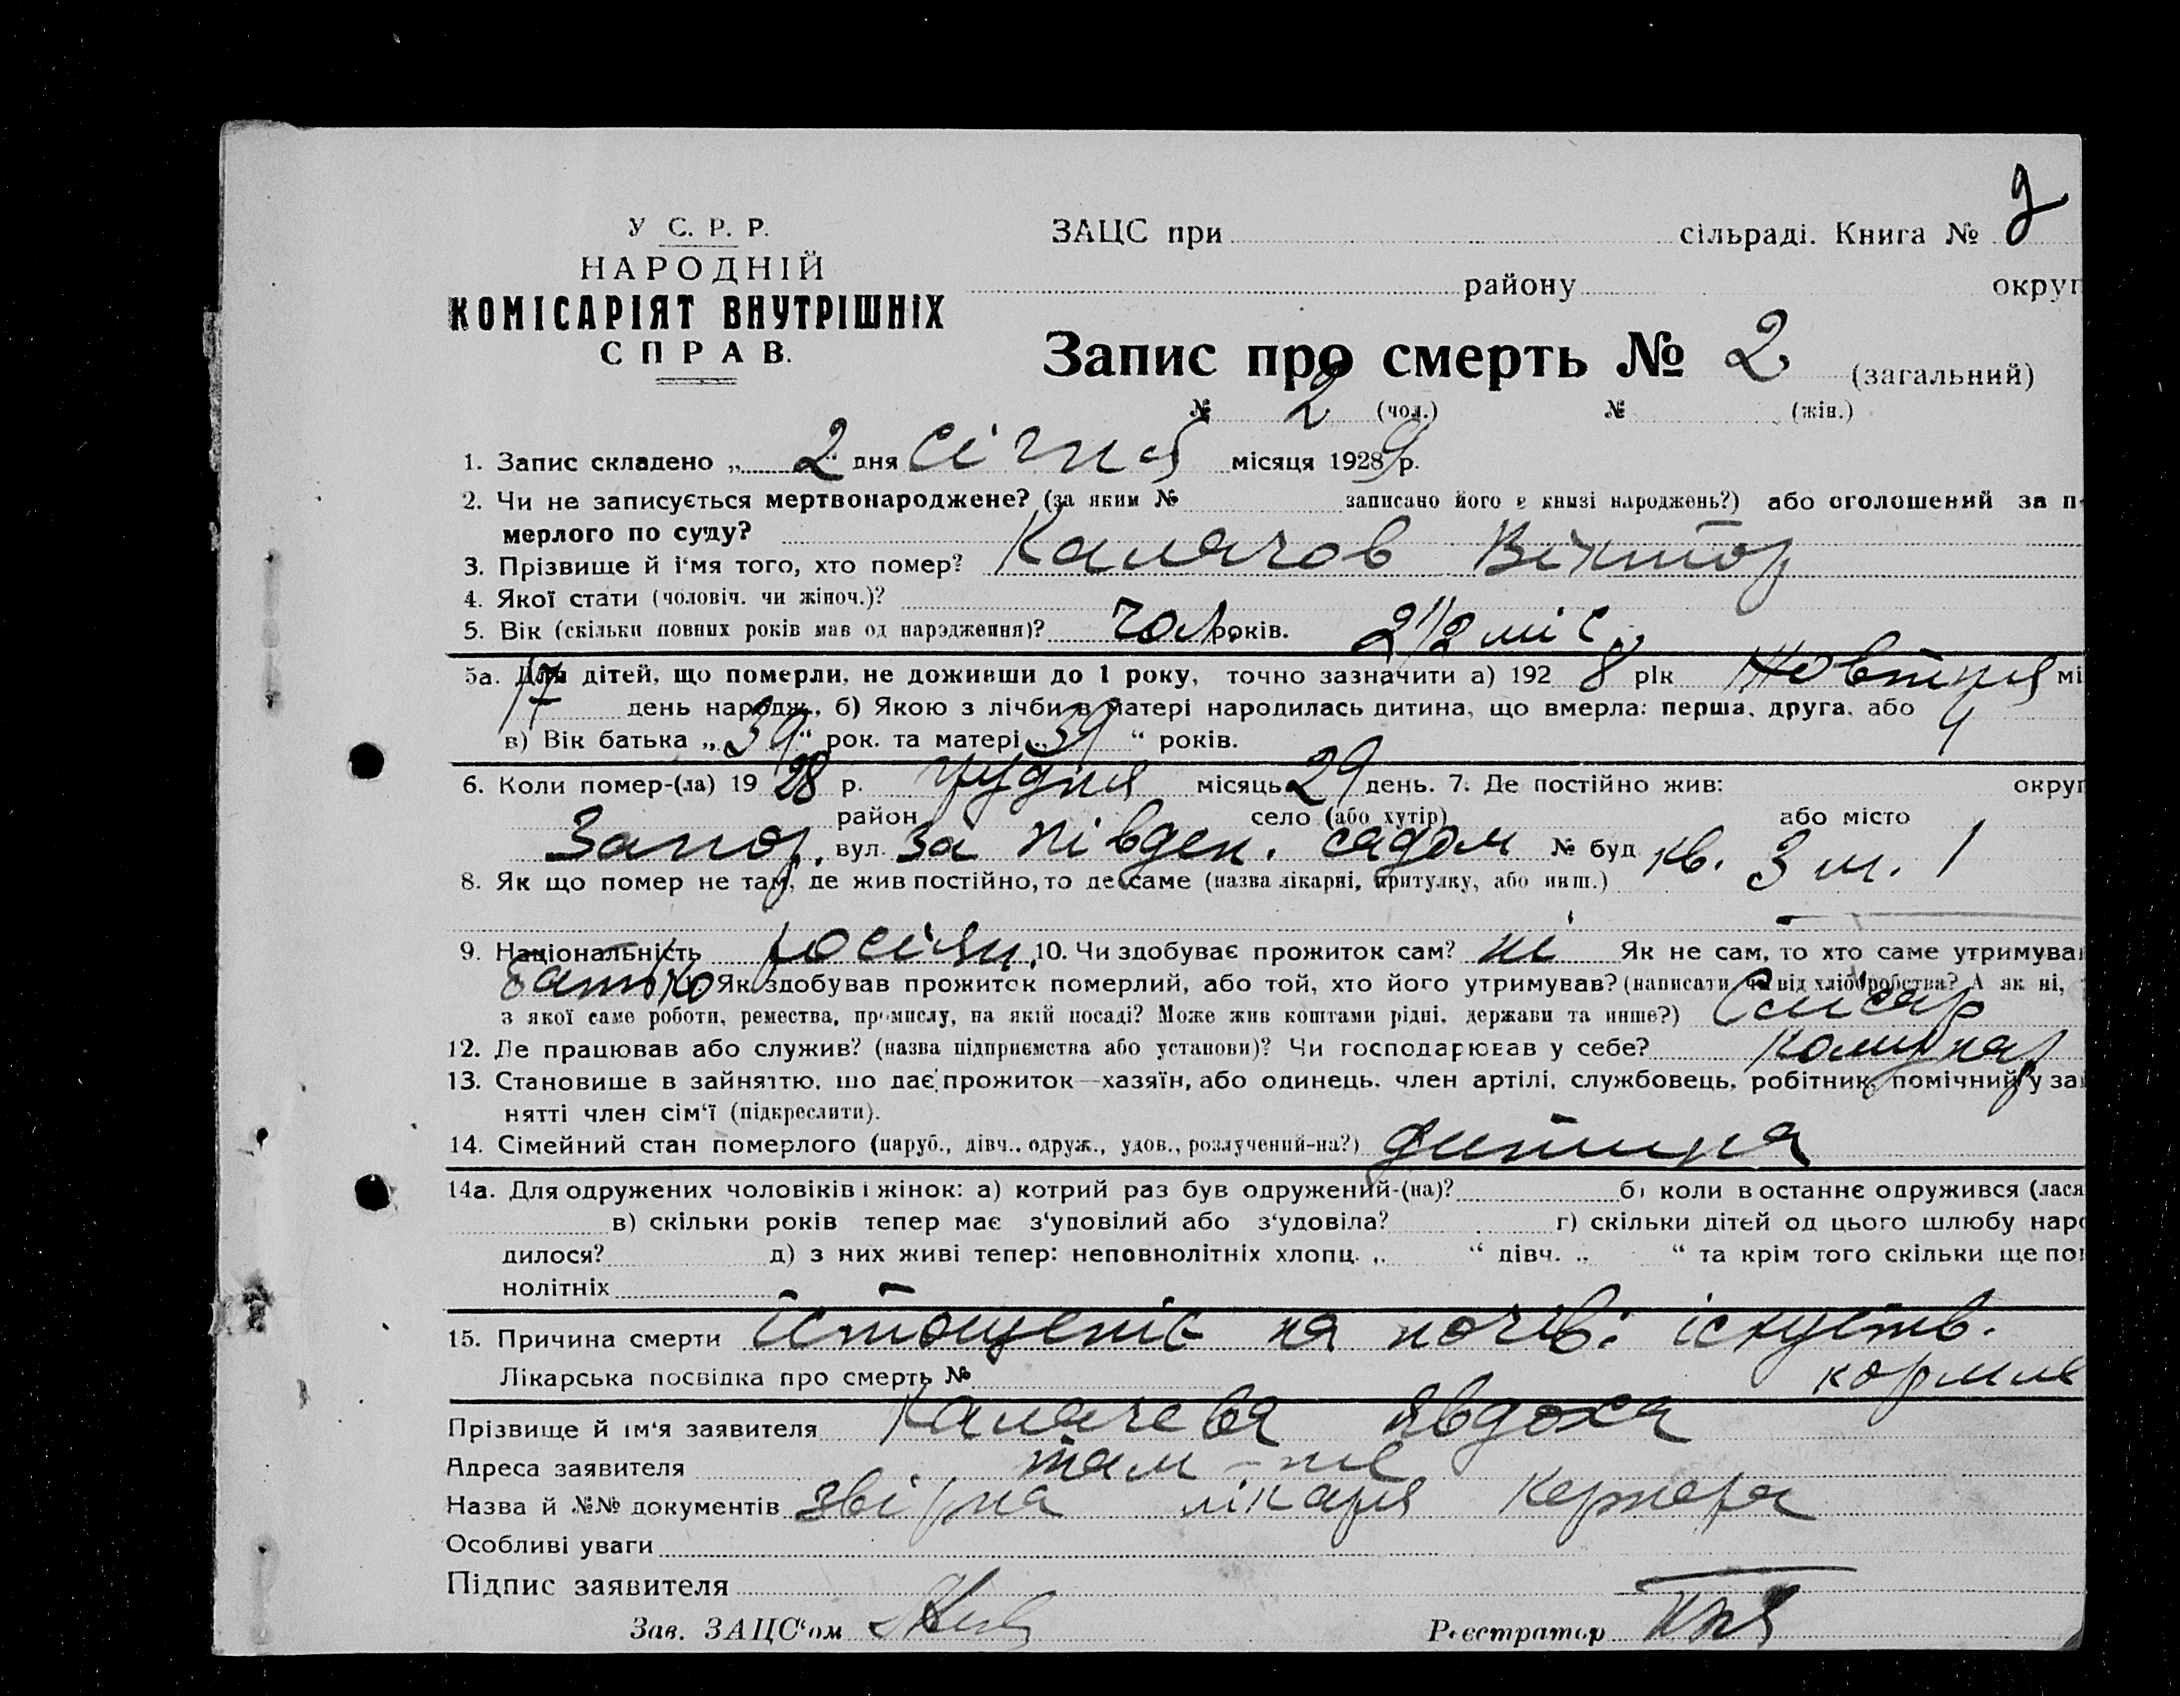 У С. Р. Р.
НАРОДНІЙ
КОМІСАРІЯТ ВНУТРІШНІХ
СПРАВ.
ЗАЦС при сільраді. Книга №
району округ
Запис про смерть № 2 (загальний)
№ 2 (чол.) № (жін.)
1. Запис складено „ 2 “ дня січня місяця 19289 р.
2. Чи не записується мертвонароджене? (за яким № записано його в книзі народжень?) або оголошений за п
мерлого по суду?
3. Прізвище й і‘мя того, хто помер? Калачов Віктор
4. Якої стати (чоловіч. чи жіноч.)?
5. Вік (скільки повних років мав од народження)? чол. років. 2 1/2 міс.
5а. Для дітей, що померли, не доживши до 1 року, точно зазначити а) 192 8 рік Жовтня мі
17 день народж., б) Якою з лічби в матері народилась дитина, що вмерла: перша, друга, або 4
в) Вік батька „ 39 “ рок. та матері „ 39 “ років.
6. Коли помер-(ла) 19 28 р. грудня місяць 29 день. 7. Де постійно жив: округ
район село (або хутір) або місто
Запор. вул. за півден. садом № буд кв. 3 м. 1
8. Як що помер не там, де жив постійно, то де саме (назва лікарні, притулку, або инш.)
9. Національність росіян. 10. Чи здобуває прожиток сам? ні Як не сам, то хто саме утримува
батько Як здобував прожиток померлий, або той, хто його утримував? (написати, чи від хліборобства? А як ні,
з якої саме роботи, ремества, промислу, на якій посаді? Може жив коштами рідні, держави та инше?) Слюсар
12. Де працював або служив? (назва підприємства або установи)? Чи господарював у себе? Комунар
13. Становище в зайняттю, що дає прожиток—хазяїн, або одинець, член артілі, службовець, робітник, помічний у за
нятті член сім‘ї (підкреслити).
14. Сімейний стан померлого (паруб., дівч., одруж., удов., розлучений-на?) дитина
14а. Для одружених чоловіків і жінок: а) котрий раз був одружений-(на)? б) коли в останнє одружився (лася
в) скільки років тепер має з‘удовілий або з‘удовіла? г) скільки дітей од цього шлюбу наро
дилося? д) з них живі тепер: неповнолітніх хлопц. „ “ дівч. „ “ та крім того скільки ще пов
нолітніх
15. Причина смерти істощеніє на почві іскуств.
Лікарська посвідка про смерть № кормле
Прізвище й ім‘я заявителя Калачева Явдоха
Адреса заявителя там-же
Назва й №№ документів лікаря
Особливі уваги
Підпис заявителя
Зав. ЗАЦС‘ом Реєстратор